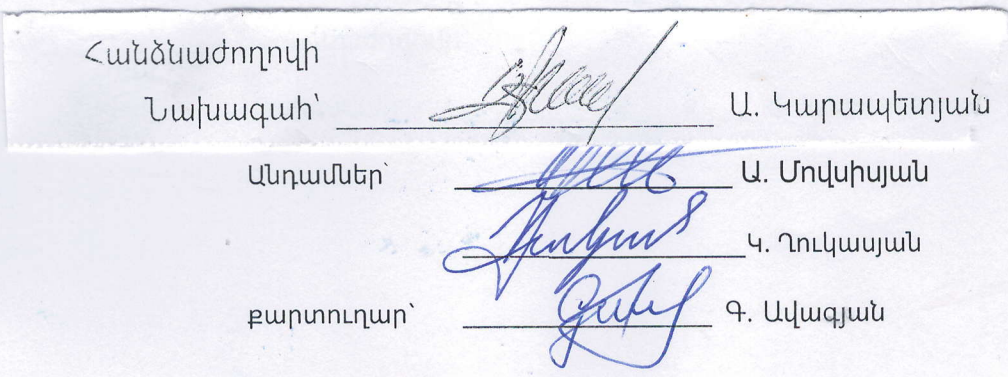 Հանձնաժողովի
Նախագահ՝ Ա. Կարապետյան
Անդամներ՝ Ա. Մովսիսյան
Կ. Ղուկասյան
քարտուղար՝ Գ. Ավագյան